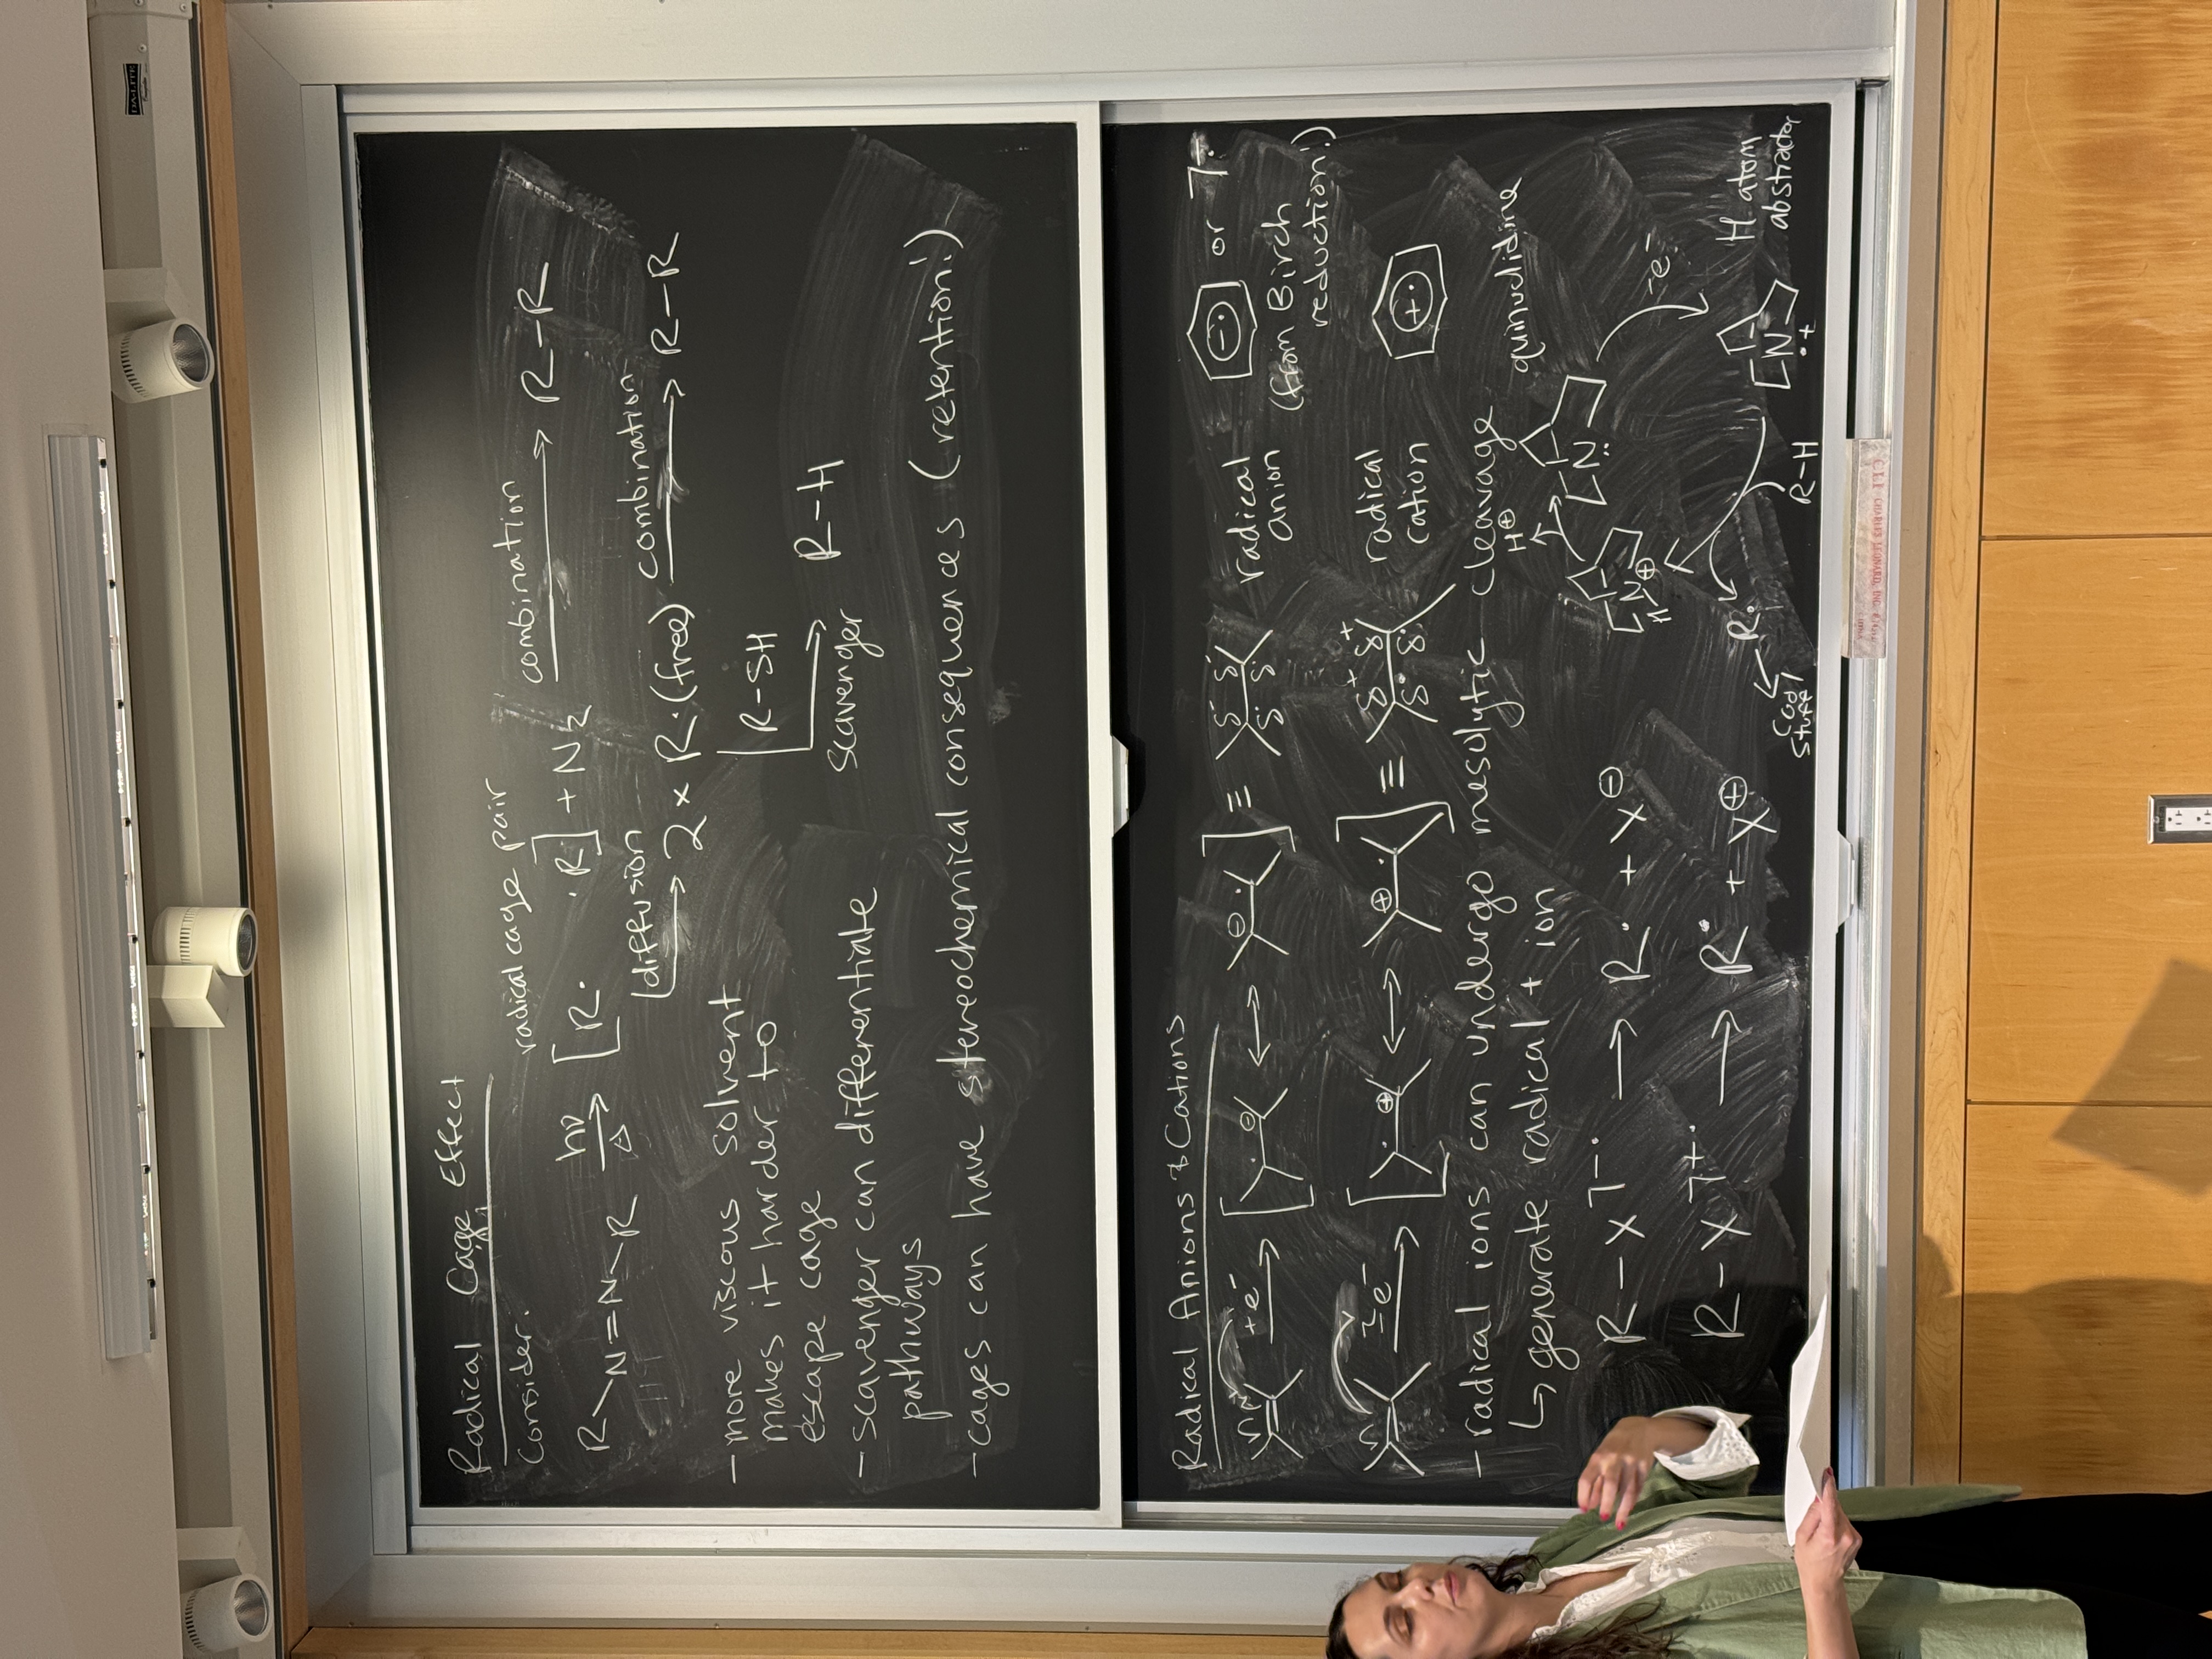 DA-LITE
Radical Cage Effect
Consider.
radical cage pair
R\N=N\R hν Δ → [R· ·R] + N2 combination → R-R
diffusion → 2 x R·(free) combination → R-R
- more viscous solvent
makes it harder to
escape cage
R-SH
scavenger → R-H
- scavenger can differentiate
pathways
- cages can have stereochemical consequences (retention!)
Radical Anions & Cations
+e⁻ → [· ⊖ ↔ ⊖ ·] ≡ δ⁻ δ⁻ δ· δ· radical anion
⊖· or ⁻·
(from Birch
reduction!)
-e⁻ → [· ⊕ ↔ ⊕ ·] ≡ δ⁺ δ⁺ δ· δ· radical cation
+·
- radical ions can undergo mesolytic cleavage
↳ generate radical + ion
R-X⁻· → R· + X⊖
R-X⁺· → R· + X⊕
quinuclidine
H⊕
N
H N⊕
-e⁻
N
·+
H atom
abstractor
R-H
R·
Cool
Stuff
CHARLES LEONARD, INC.